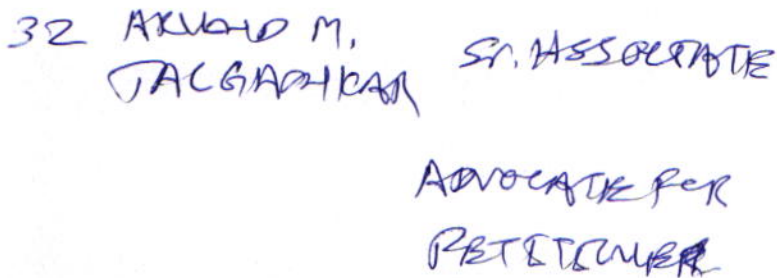 32 ARVIND M.
TALGAONKAR Sr. ASSOCIATE
ADVOCATE FOR
PETITIONER